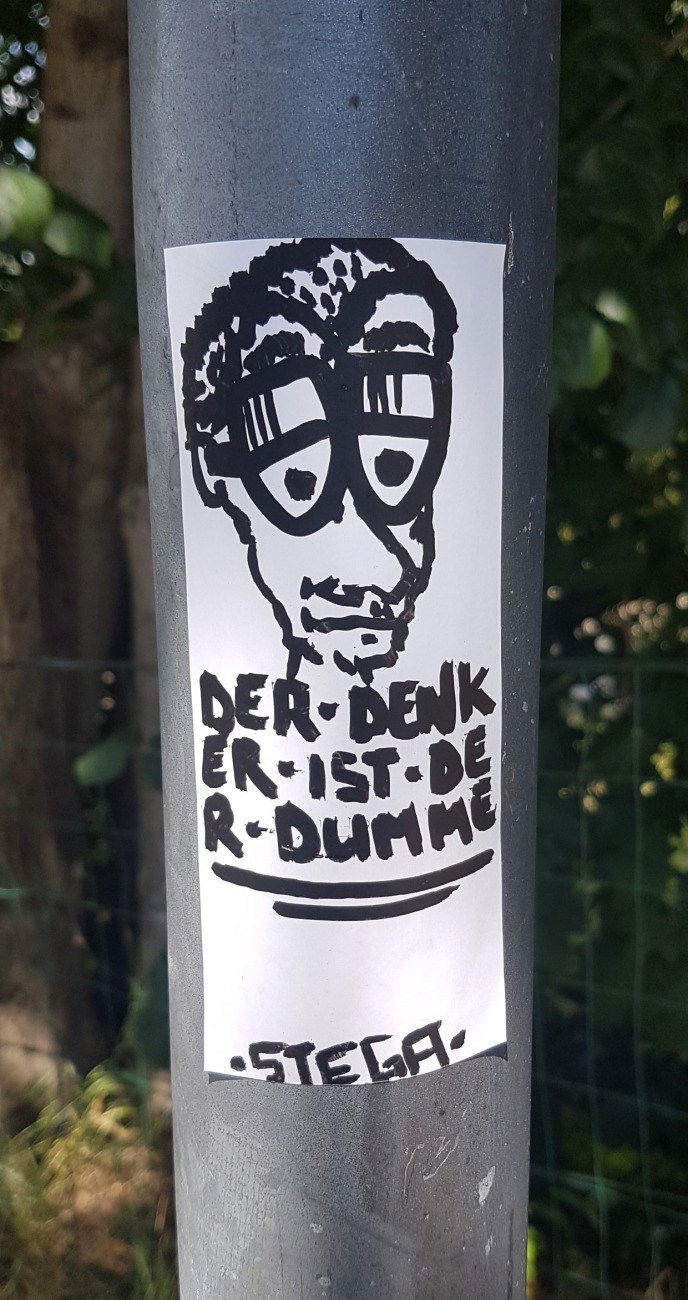 DER·DENK
ER·IST·DE
R·DUMME
·STEGA·